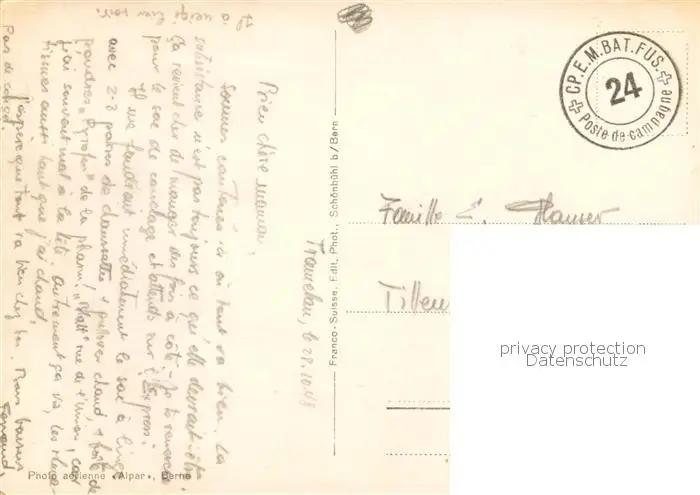 Tramelan, le 28.10.43
Bien chère maman,
Sommes cantonnés ici où tout va bien. La
subsistance n'est pas toujours ce qu'elle devrait être
ça revient cher de manger des fois à côté. Je te remercie
pour le sac de couchage et attends sur l'Express.
Il me faudrait immédiatement le sac à linge
avec 2-3 paires de chaussettes + pullover chaud + boîte de
poudres de la pharm. rue de l'union, car
j'ai souvent mal à la tête. autrement ça va, les
aussi tant que j'ai chaud.
J'espère que tout va bien chez toi. Bons baisers
Pas de congé.
Fernand
Il a neigé hier soir.
CP.E.M.BAT.FUS.
24
Poste de campagne
Famille E. Hauser
Tilleu
Franco-Suisse, Edit. Phot., Schönbühl b/Bern
Photo aérienne «Alpar», Berne
privacy protection
Datenschutz